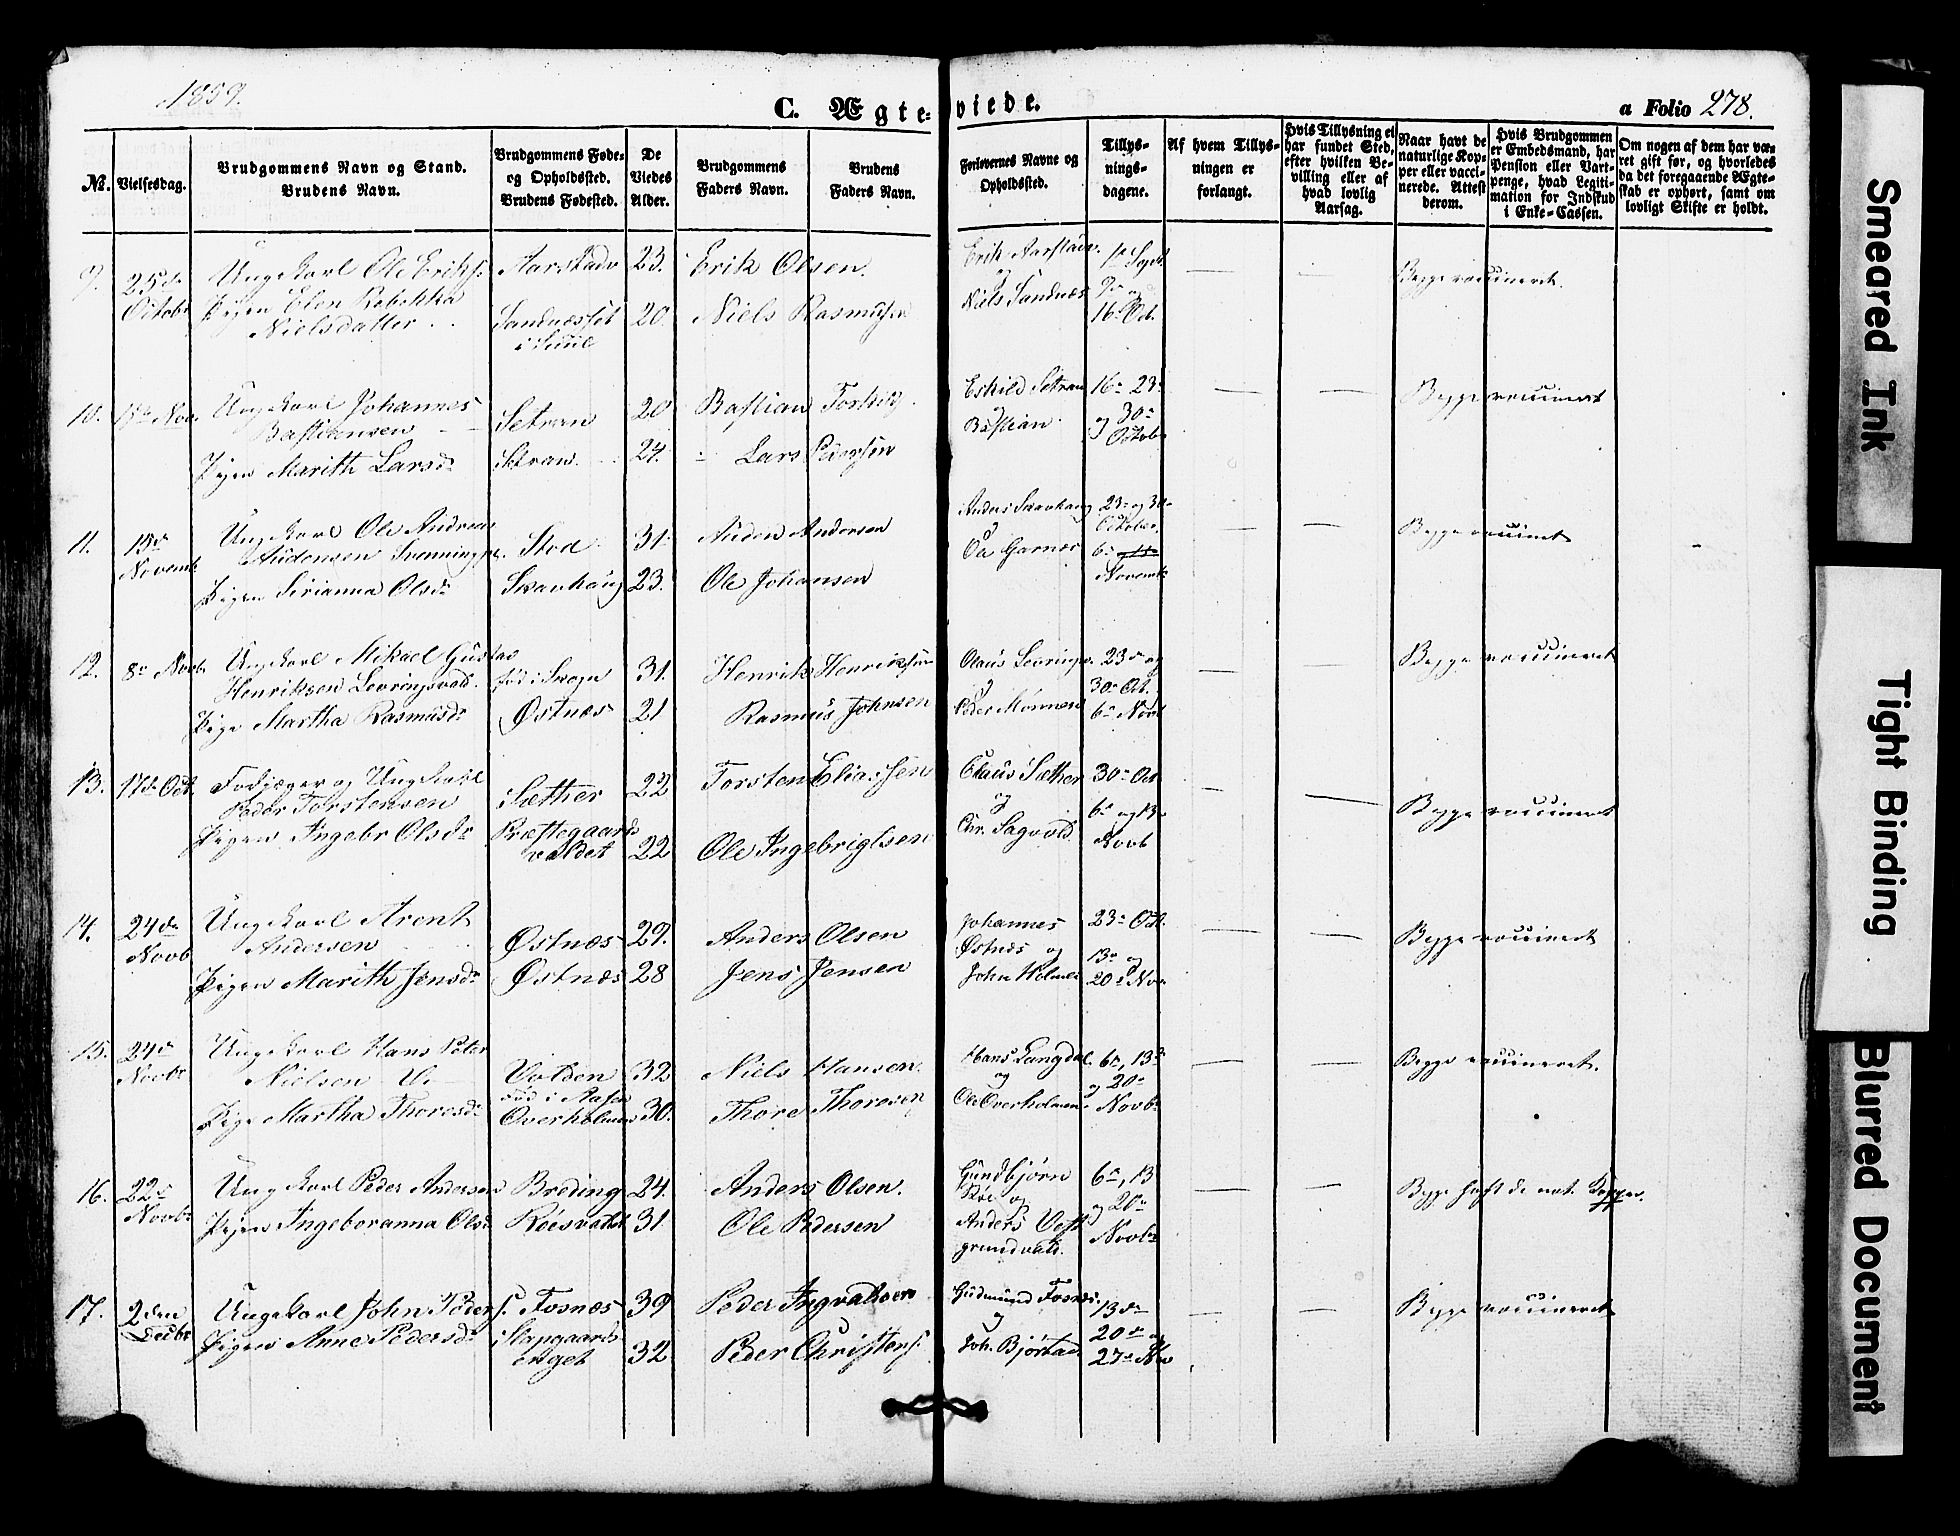 1859.
C. Ægte-
viede.
a Folio 278.
No.
Vielsesdag.
Brudgommens Navn og Stand.
Brudens Navn.
Brudgommens Føde-
og Opholdssted.
Brudens Fødested.
De
Viedes
Alder.
Brudgommens
Faders Navn.
Brudens
Faders Navn.
Forlovernes Navne og
Opholdssted.
Tillys-
nings-
dagene.
Af hvem Tillys-
ningen er
forlangt.
Hvis Tillysning ei
har fundet Sted,
efter hvilken Be-
villing eller af
hvad lovlig
Aarsag.
Naar havt de
naturlige Kop-
per eller vacci-
nerede. Attest
derom.
Hvis Brudgommen
er Embedsmand, har
Pension eller Vart-
penge, hvad Legiti-
mation for Indskud
i Enke-Cassen.
Om nogen af dem har væ-
ret gift før, og hvorledes
da det foregaaende Ægte-
skab er ophørt, samt om
lovligt Skifte er holdt.
9.
25de
Octobr
Ungekarl Ole Eriks.
Pigen Elen Rebekka
Nielsdatter
Aarstadv
Sandnæsset
23.
20.
Erik Olsen.
Niels Rasmusen
Erik Aarstadv.
og
Niels Sandnæs
9de og
16. Oct.
Begge vaccineret.
10.
Nov.
Ungkarl Johannes
Bastiansen
Pigen Marith Larsdr
Setran
Setran
20
24.
Bastian
Lars Pedersen
Eskild Setran
og
Bastian
16. 23.
og 30.
Octobr
Begge vaccineret
11.
Novemb
Ungkarl Ole Andreas
Pigen Sirianna Olsdr
Stod
Skavhaug
31.
23.
Anders Andersen
Ole Johansen
Anders Skavhaug
og
23. og 30.
October
6.
Novembr
Begge vaccineret
12.
8. Novbr
Ungkarl Mikael Gustav
Henriksen Levringsvad.
Pige Martha Rasmusdr
født i Skogn
Østnæs
31.
21
Henrik Henriksen
Rasmus Johnsen
Olaus Levringsv.
og
23de og
30. Oct.
6. Novb
Begge vaccineret
13.
17de Oct.
Fodjæger og Ungkarl
Peder Torstensen
Pigen Ingebr Olsdr
Sætther
Præstegaards
valdet
22
22
Torsten Eliassen
Ole Ingebrigtsen
Claus Sætther
og
Chr. Sagvold
30. Oct
6. og 13.
Novb
Begge vaccineret
14.
24de
Novb
Ungkarl Arent
Andersen
Pigen Marith Jensdr
Østnæs
Østnæs
29.
28
Anders Olsen
Jens Jensen
Johannes
Østnæs og
John Holmen
23. Oct.
13. og
20. Nov.
Begge vaccineret
15.
24de
Novbr
Ungekarl Hans Peter
Nielsen
Pige Martha Thoresdr
Volden
Overholmen
32
30.
Niels Hansen.
Thore Thoresen
Hans Langdal.
og
Ole Overholmen
6., 13.
og 20.
Novbr
Begge vaccineret.
16.
22.
Novbr
Ungkarl Peder Andersen
Pigen Ingeboranna Olsdr
Breding
Röesvaldet
24.
31
Anders Olsen.
Ole Pedersen
Gundbjørn
Röe og
Anders Vest
grundvald.
6., 13
og 20.
Novbr
Begge havt de nat. Kopper.
17.
2den
Decbr
Ungekarl John Peders.
Pigen Anne Pedersdr
Fosnæs
enget
39
32
Peder Ingvaldsen
Peder Christens.
Gudmund Fosnæs.
og
Joh. Bjørtad
13de
20de og
27. Nov
Begge vaccineret
Smeared Ink
Tight Binding
Blurred Document